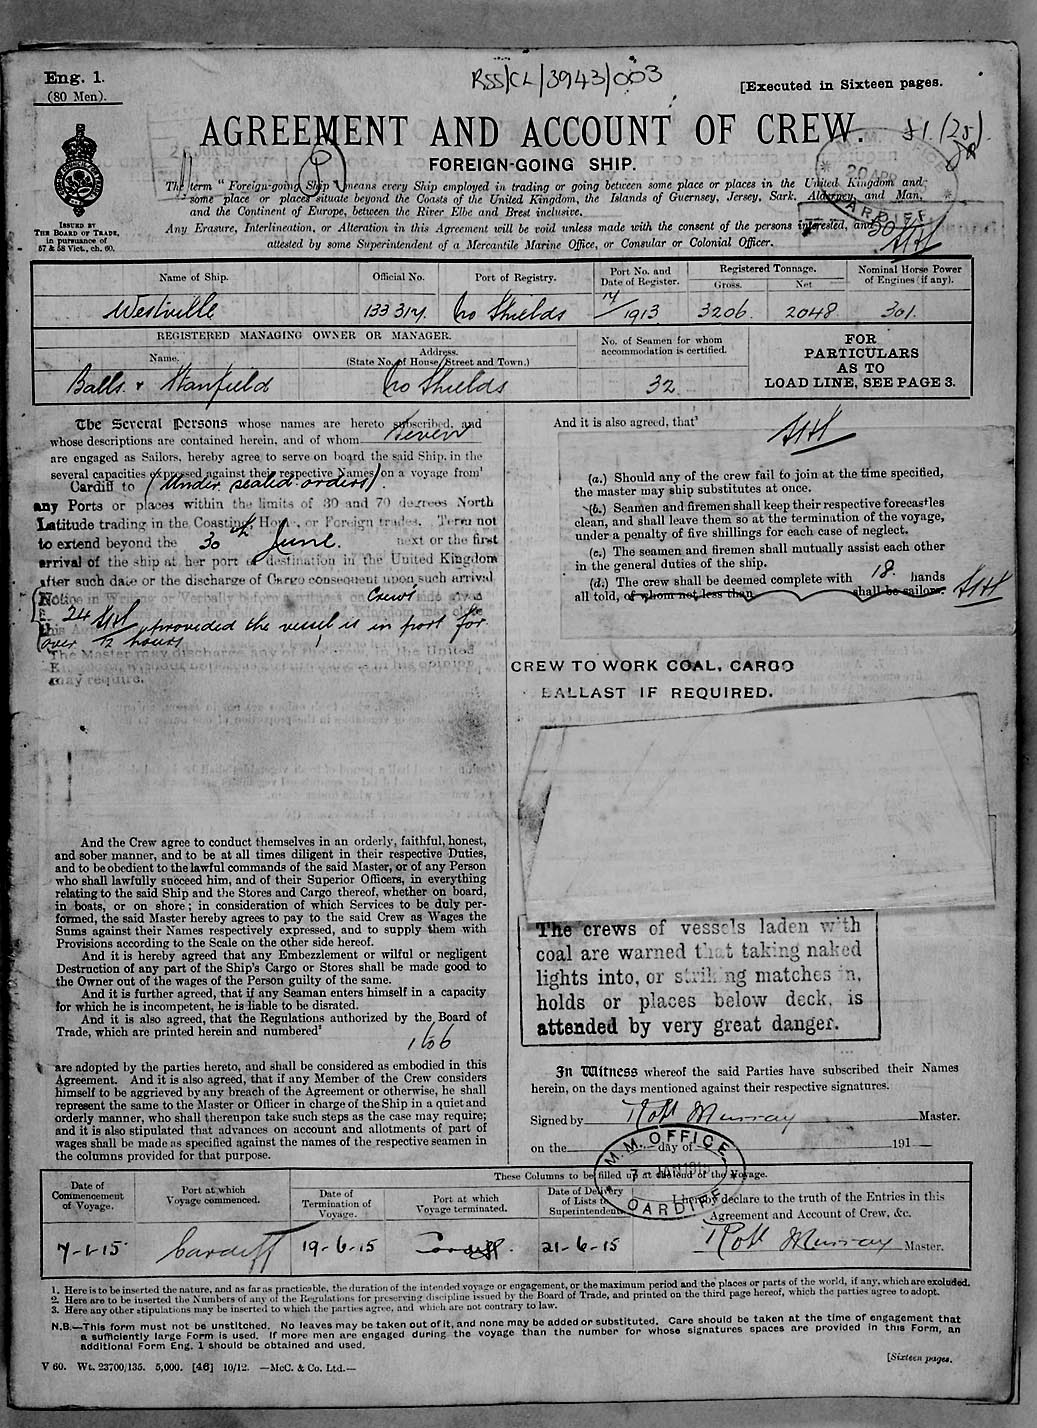 Eng. 1.
(80 Men).
RSS/CL/3943/003
[Executed in Sixteen pages.
AGREEMENT AND ACCOUNT OF CREW.
FOREIGN-GOING SHIP.
The term "Foreign-going Ship" means every Ship employed in trading or going between some place or places in the United Kingdom and
some place or places situate beyond the Coasts of the United Kingdom, the Islands of Guernsey, Jersey, Sark, Alderney, and Man,
and the Continent of Europe, between the River Elbe and Brest inclusive.
Any Erasure, Interlineation, or Alteration in this Agreement will be void unless made with the consent of the persons interested, and
attested by some Superintendent of a Mercantile Marine Office, or Consular or Colonial Officer.
M.M. OFFICE
20 APR
CARDIFF
ISSUED BY
THE BOARD OF TRADE,
in pursuance of
57 & 58 Vict., ch. 60.
Name of Ship. Official No. Port of Registry. Port No. and Date of Register. Registered Tonnage. Gross. Net Nominal Horse Power of Engines (if any).
Westville 133317 No Shields 14/1913 3206. 2048. 301.
REGISTERED MANAGING OWNER OR MANAGER.
Name. Address. (State No. of House, Street and Town.)
No. of Seamen for whom accommodation is certified.
Balls & Stanfield No Shields 32
FOR
PARTICULARS
AS TO
LOAD LINE, SEE PAGE 3.
The Several Persons whose names are hereto subscribed, and
whose descriptions are contained herein, and of whom Seven
are engaged as Sailors, hereby agree to serve on board the said Ship, in the
several capacities expressed against their respective Names, on a voyage from¹
Cardiff to (Under sealed orders)
any Ports or places within the limits of 30 and 70 degrees North
Latitude trading in the Coasting, Home, or Foreign trades. Term not
to extend beyond the 30th June. next or the first
arrival of the ship at her port of destination in the United Kingdom
after such date or the discharge of Cargo consequent upon such arrival
Notice in Writing or Verbally before a witness on Crews side given
24
provided the vessel is in port for
over 12 hours
The Master may discharge any of the crew, in the United
may require.
And the Crew agree to conduct themselves in an orderly, faithful, honest,
and sober manner, and to be at all times diligent in their respective Duties,
and to be obedient to the lawful commands of the said Master, or of any Person
who shall lawfully succeed him, and of their Superior Officers, in everything
relating to the said Ship and the Stores and Cargo thereof, whether on board,
in boats, or on shore; in consideration of which Services to be duly per-
formed, the said Master hereby agrees to pay to the said Crew as Wages the
Sums against their Names respectively expressed, and to supply them with
Provisions according to the Scale on the other side hereof.
And it is hereby agreed that any Embezzlement or wilful or negligent
Destruction of any part of the Ship's Cargo or Stores shall be made good to
the Owner out of the wages of the Person guilty of the same.
And it is further agreed, that if any Seaman enters himself in a capacity
for which he is incompetent, he is liable to be disrated.
And it is also agreed, that the Regulations authorized by the Board of
Trade, which are printed herein and numbered²
1 to 6
are adopted by the parties hereto, and shall be considered as embodied in this
Agreement. And it is also agreed, that if any Member of the Crew considers
himself to be aggrieved by any breach of the Agreement or otherwise, he shall
represent the same to the Master or Officer in charge of the Ship in a quiet and
orderly manner, who shall thereupon take such steps as the case may require;
and it is also stipulated that advances on account and allotments of part of
wages shall be made as specified against the names of the respective seamen in
the columns provided for that purpose.
And it is also agreed, that³
(a.) Should any of the crew fail to join at the time specified,
the master may ship substitutes at once.
(b.) Seamen and firemen shall keep their respective forecastles
clean, and shall leave them so at the termination of the voyage,
under a penalty of five shillings for each case of neglect.
(c.) The seamen and firemen shall mutually assist each other
in the general duties of the ship.
(d.) The crew shall be deemed complete with 18. hands
all told, of whom not less than shall be sailors.
CREW TO WORK COAL, CARGO
BALLAST IF REQUIRED.
The crews of vessels laden with
coal are warned that taking naked
lights into, or striking matches in,
holds or places below deck, is
attended by very great danger.
In Witness whereof the said Parties have subscribed their Names
herein, on the days mentioned against their respective signatures.
Signed by Robt Murray Master.
on the day of 191
M.M. OFFICE
7 JAN 191
CARDIFF
These Columns to be filled up at the end of the Voyage.
Date of Commencement of Voyage. Port at which Voyage commenced. Date of Termination of Voyage. Port at which Voyage terminated. Date of Delivery of Lists to Superintendent.
I hereby declare to the truth of the Entries in this
Agreement and Account of Crew, &c.
7-1-15 Cardiff 19-6-15 Cardiff. 21-6-15 Robt Murray Master.
1. Here is to be inserted the nature, and as far as practicable, the duration of the intended voyage or engagement, or the maximum period and the places or parts of the world, if any, which are excluded.
2. Here are to be inserted the Numbers of any of the Regulations for preserving discipline issued by the Board of Trade, and printed on the third page hereof, which the parties agree to adopt.
3. Here any other stipulations may be inserted to which the parties agree, and which are not contrary to law.
N.B.—This form must not be unstitched. No leaves may be taken out of it, and none may be added or substituted. Care should be taken at the time of engagement that
a sufficiently large Form is used. If more men are engaged during the voyage than the number for whose signatures spaces are provided in this Form, an
additional Form Eng. 1 should be obtained and used.
V 60. Wt. 23700/135. 5,000. [46] 10/12. —McC. & Co. Ltd.—
[Sixteen pages.